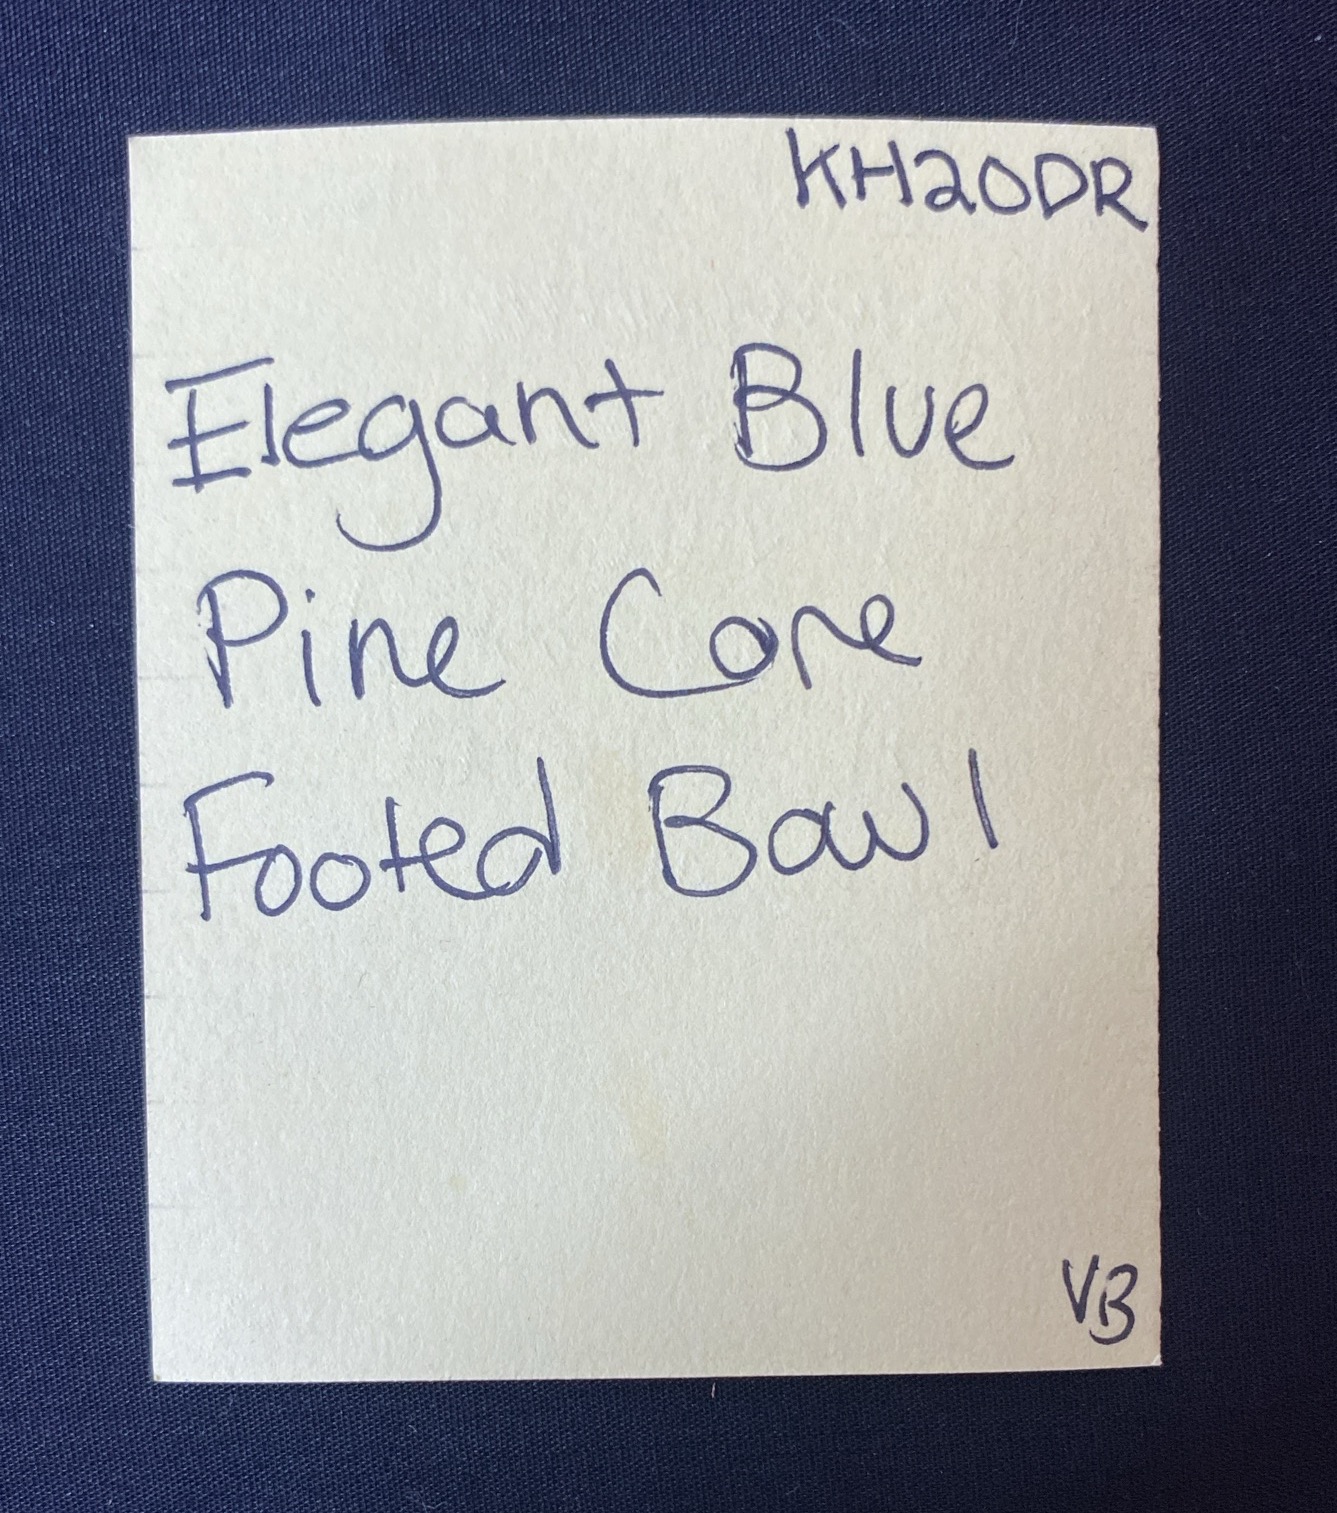 KH20DR
Elegant Blue
Pine Cone
Footed Bowl
VB